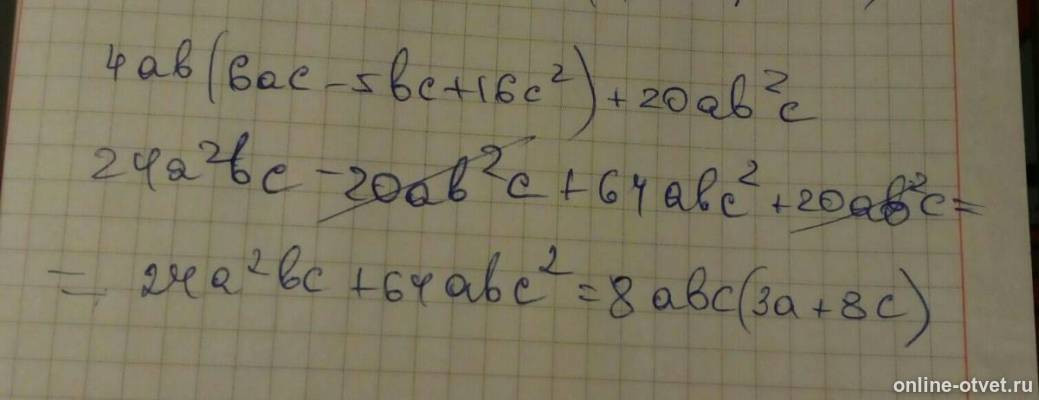 4ab(6ac-5bc+16c²)+20ab²c
24a²bc-20ab²c+64abc²+20ab²c=
=24a²bc+64abc²=8abc(3a+8c)
online-otvet.ru